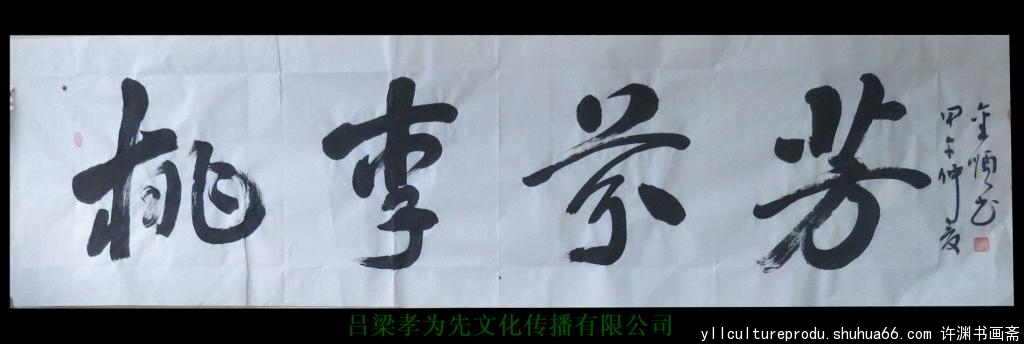 桃李芬芳
甲午仲夏
吕梁孝为先文化传播有限公司
yllcultureprodu.shuhua66.com 许渊书画斋